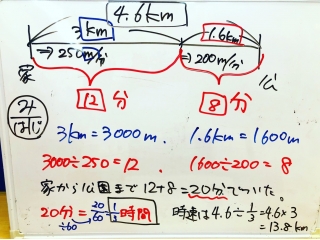 4.6km
3km 1.6km
⇒250m/分 ⇒200m/分
家 公
12分 8分
み
はじ
3km=3000m. 1.6km=1600m
3000÷250=12. 1600÷200=8
家から公園まで12+8=20分でついた。
20分=20/60=1/3時間 時速は4.6÷1/3=4.6×3
÷60 =13.8km